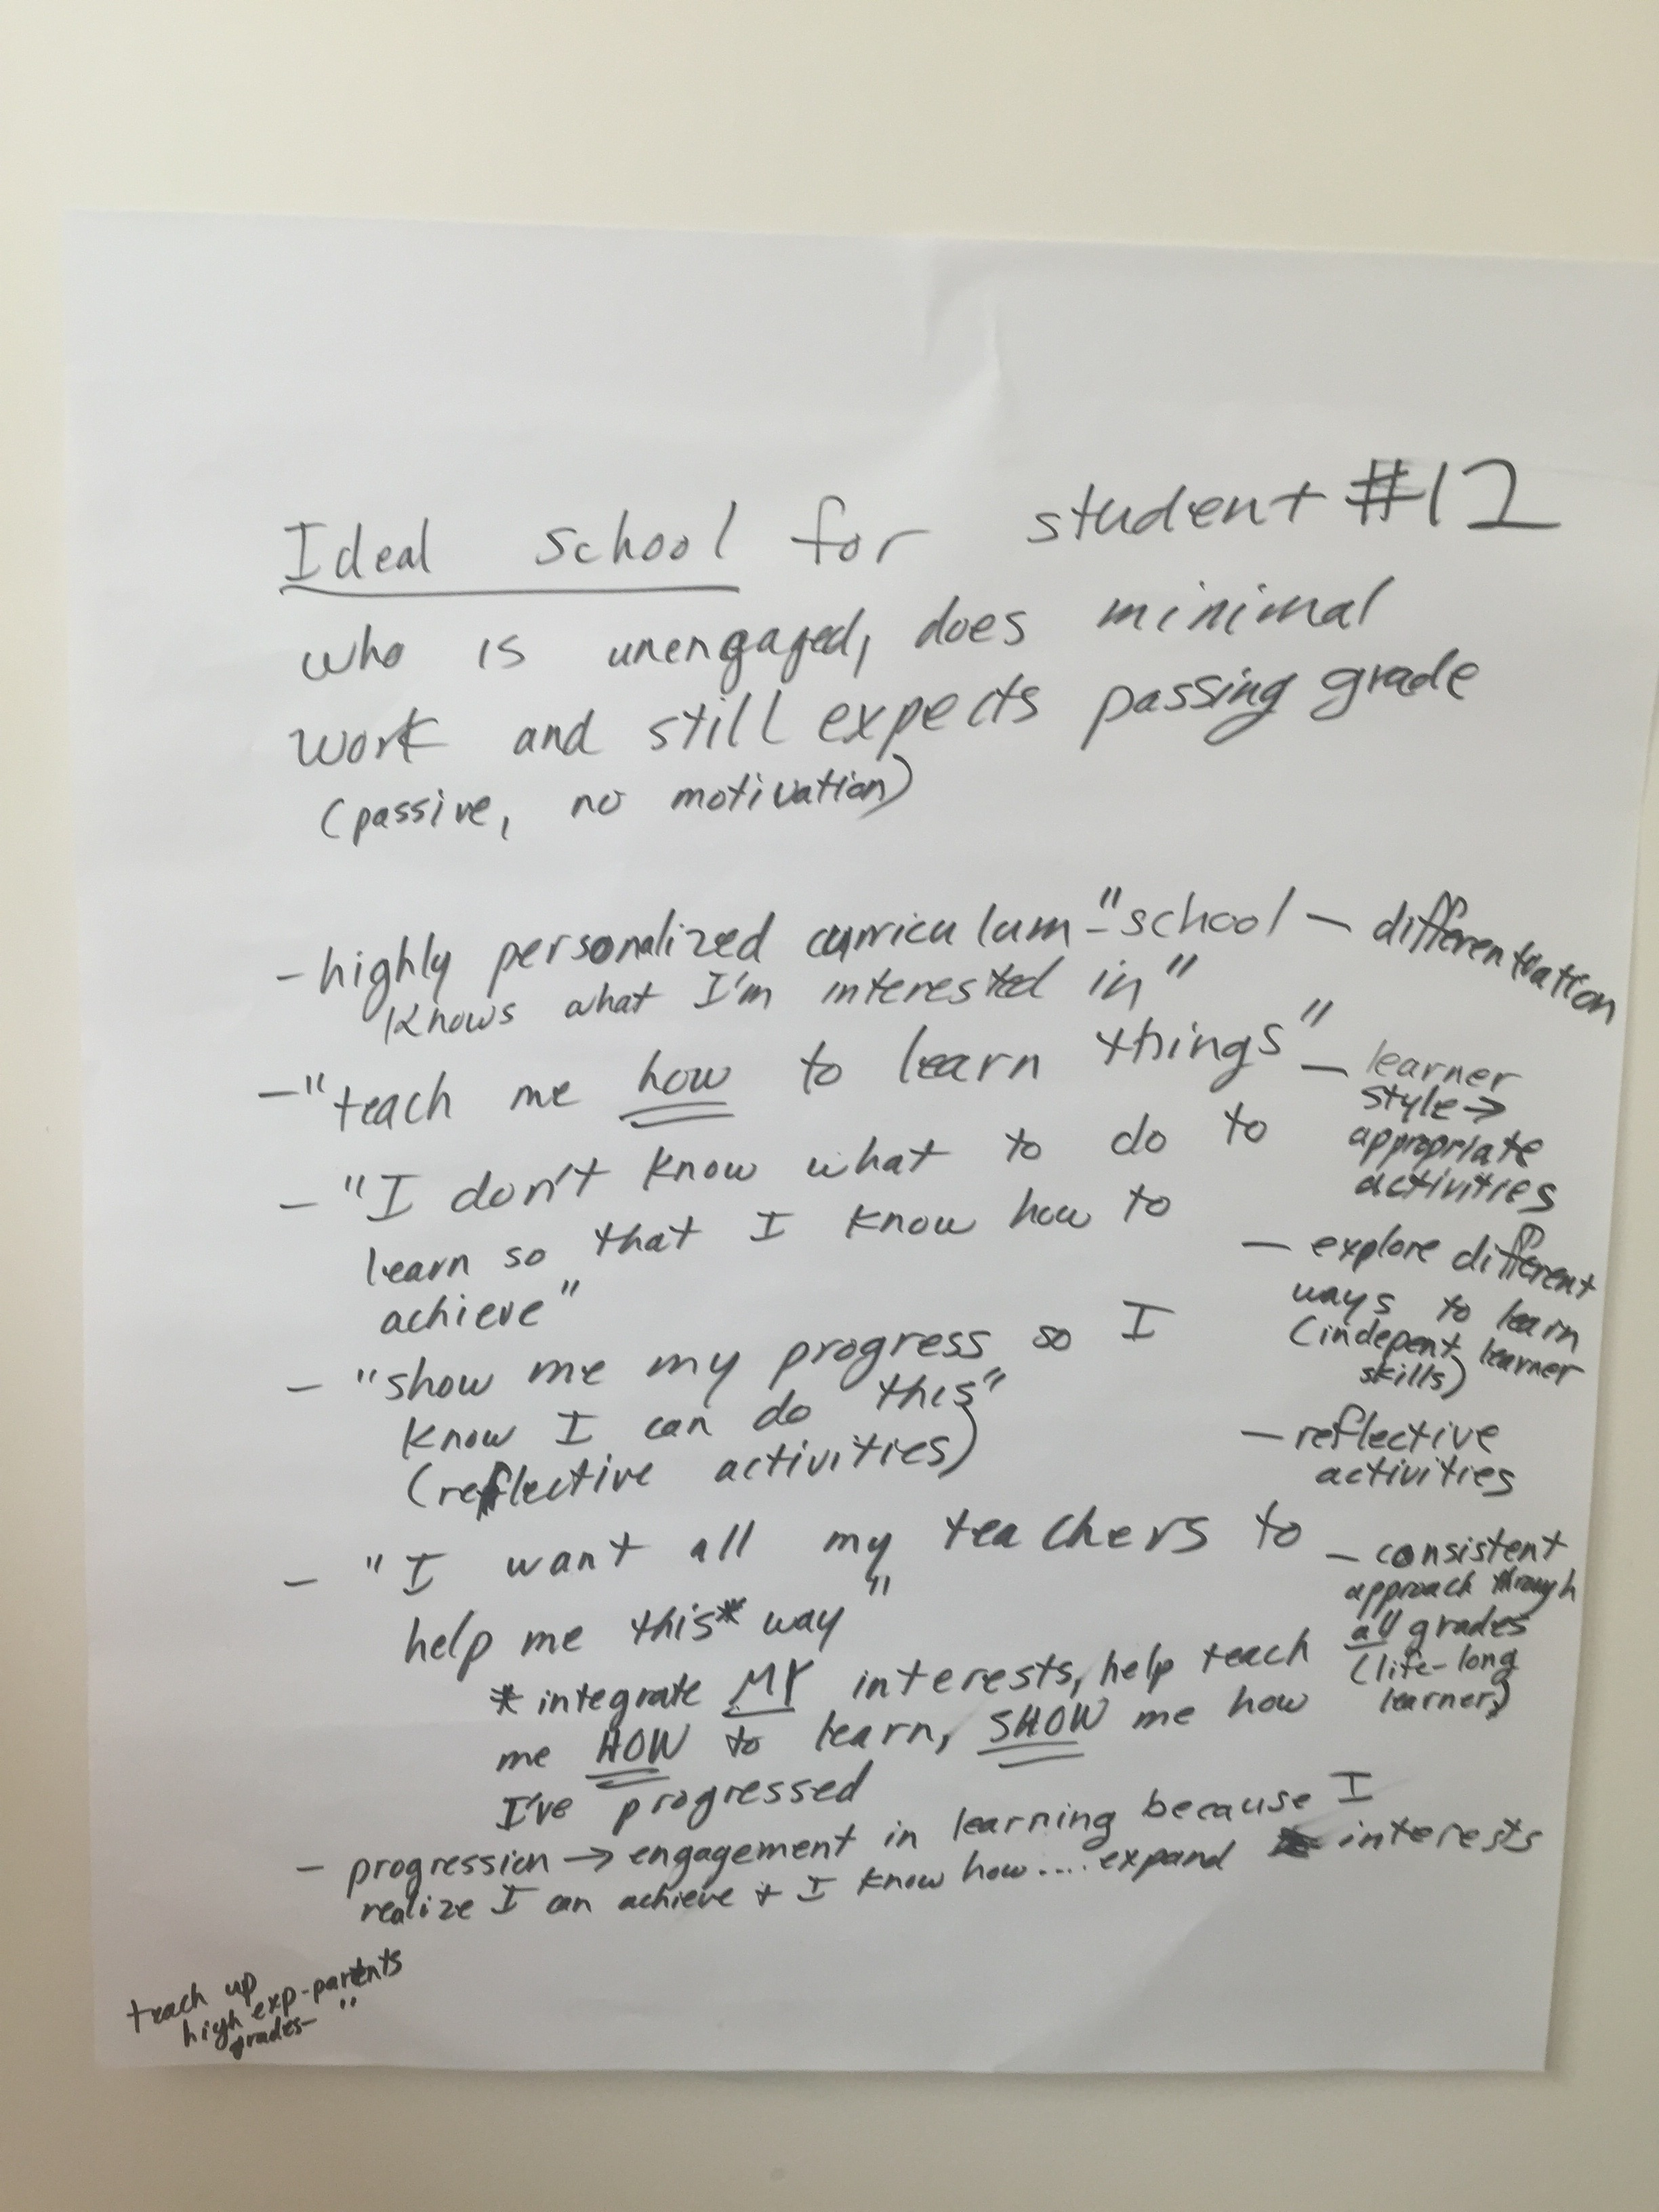 Ideal school for student #12
who is unengaged, does minimal
work and still expects passing grade
(passive, no motivation)
- highly personalized curriculum - "school
knows what I'm interested in"
- differentiation
- "teach me how to learn things"
- learner
style →
appropriate
activities
- "I don't know what to do to
learn so that I know how to
achieve"
- explore different
ways to learn
(indepent learner
skills)
- "show me my progress so I
know I can do this"
(reflective activities)
- reflective
activities
- "I want all my teachers to
help me this* way"
- consistent
approach through
all grades
(life-long
learners)
* integrate MY interests, help teach
me HOW to learn, SHOW me how
I've progressed
- progression → engagement in learning because I
realize I can achieve + I know how.... expand interests
teach up
high exp-parents
grades- "